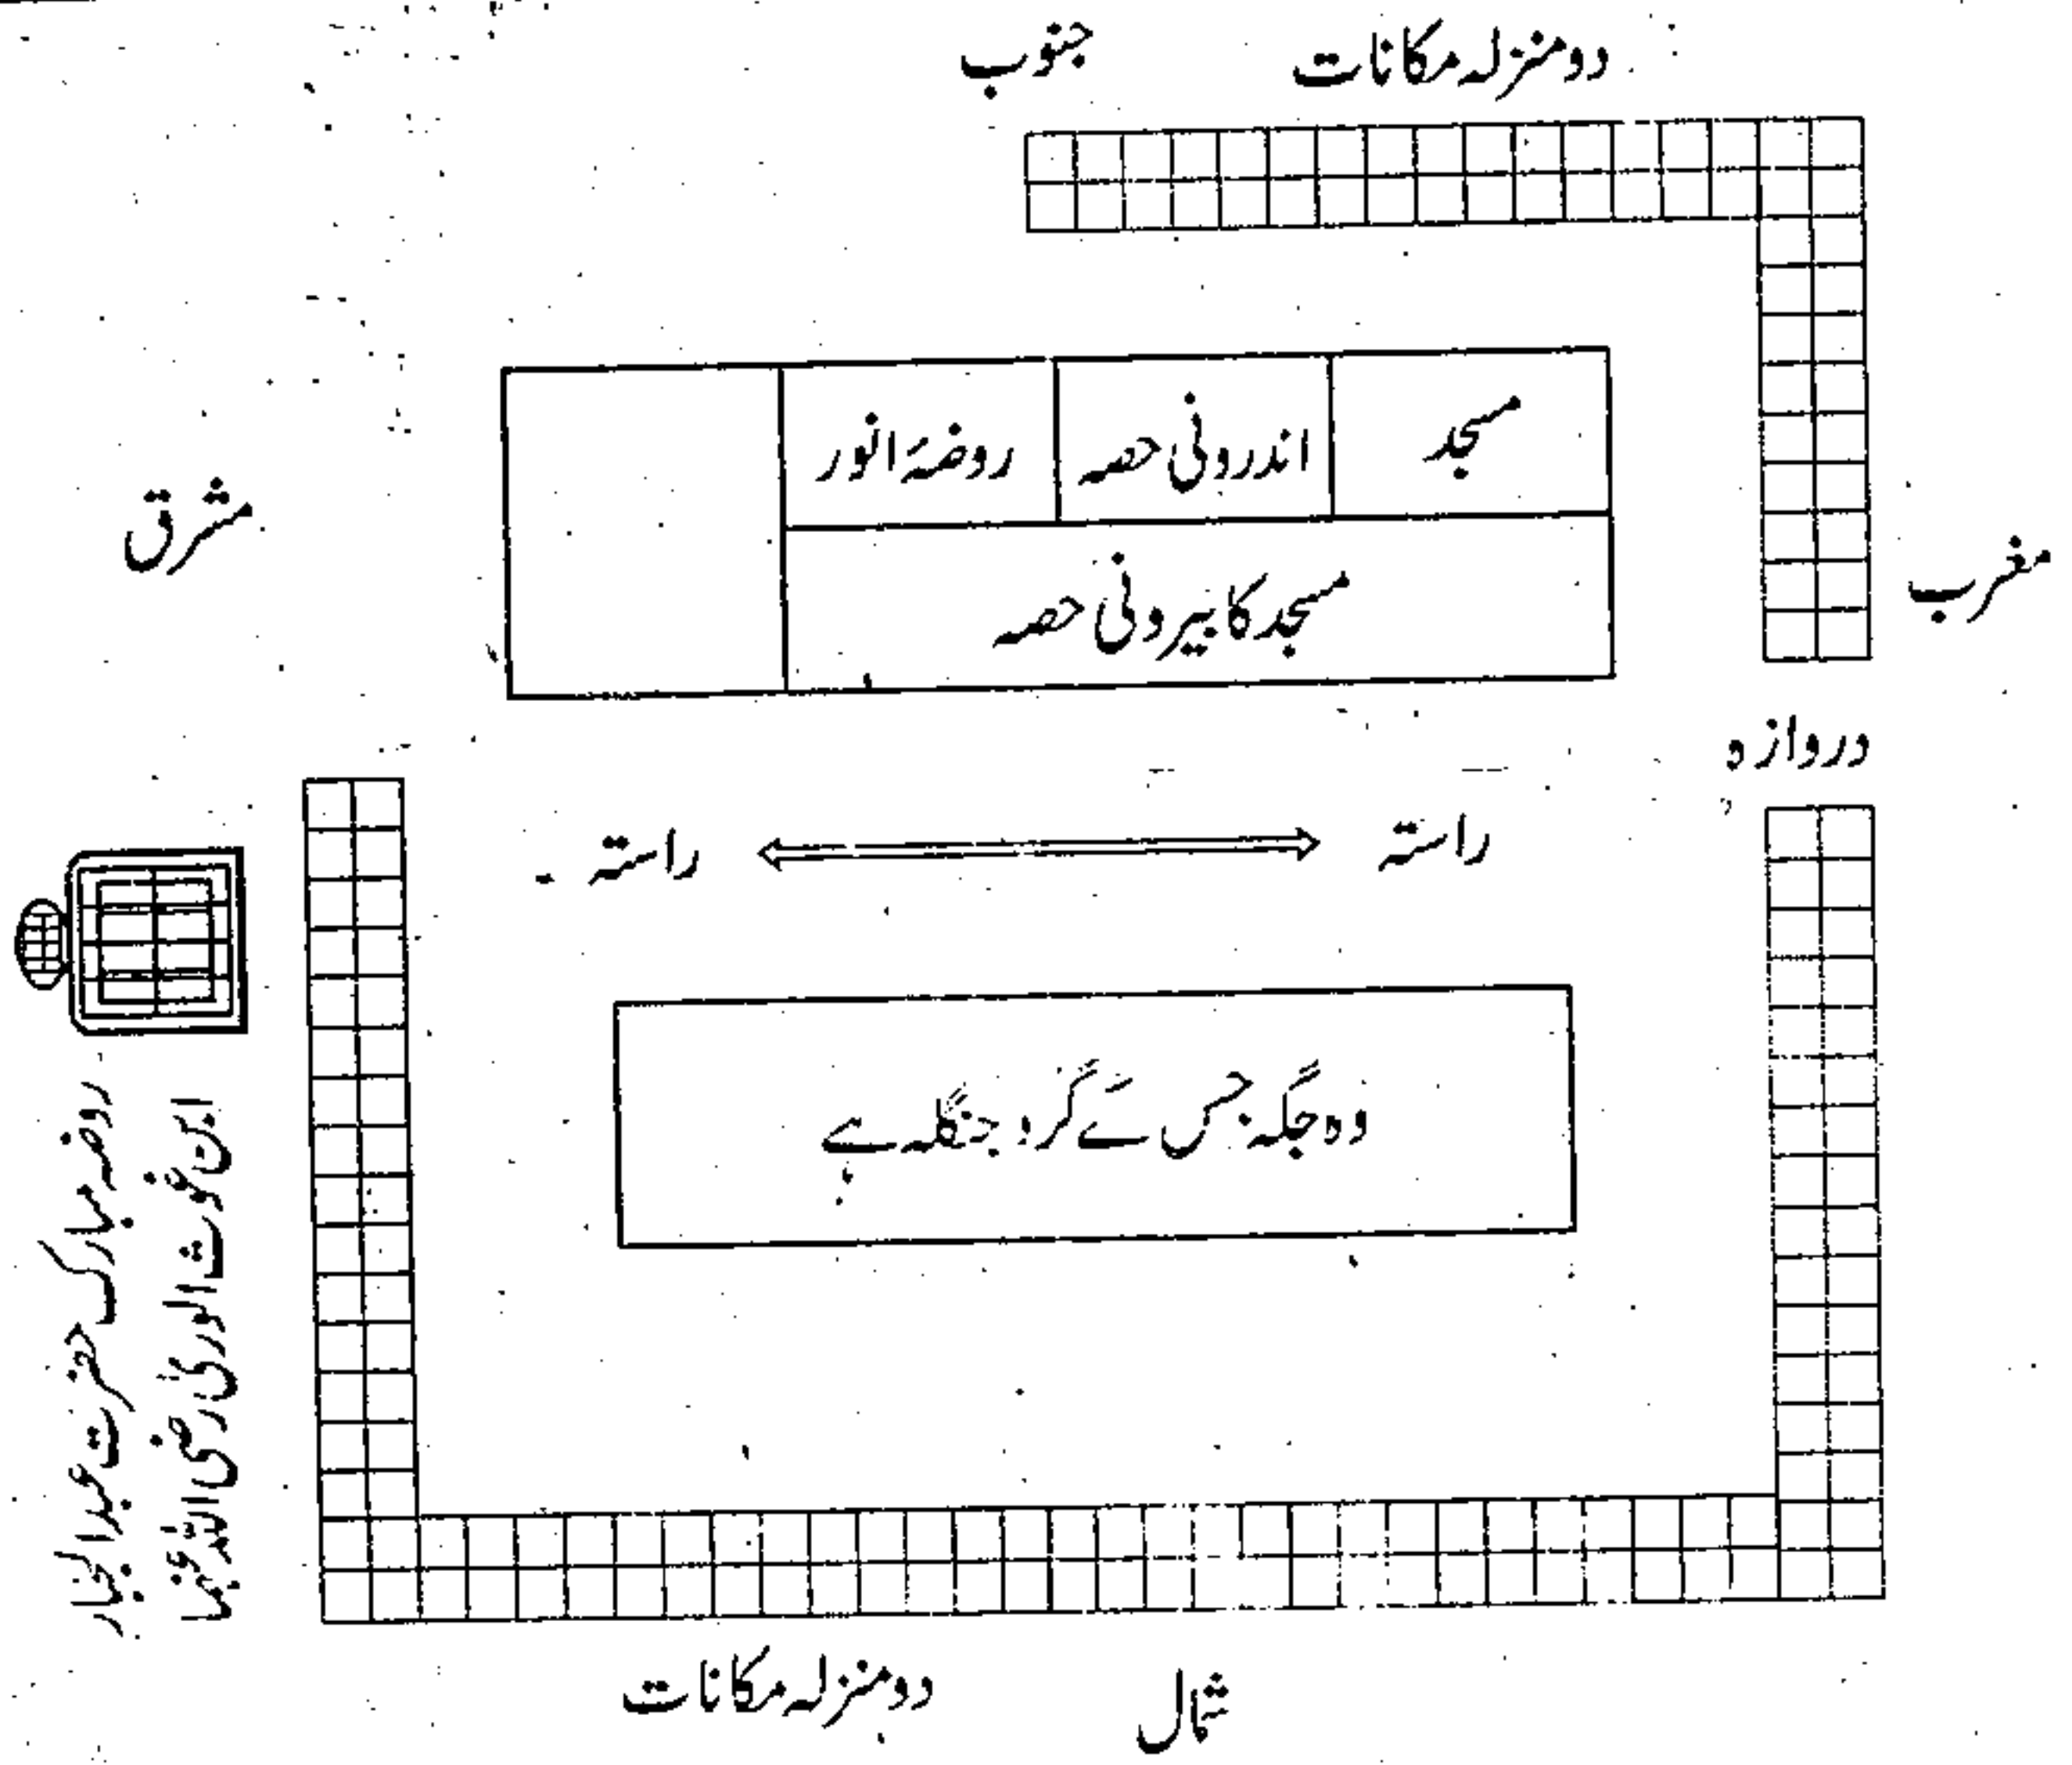 دو منزلہ مکانات
جنوب
مسجد
اندرونی حصہ
روضۂ انور
مسجد کا بیرونی حصہ
مشرق
مغرب
دروازہ
راستہ
راستہ
وہ جگہ جس کے گرد جنگلہ ہے
روضہ مبارک حضرت عبدالجبار
ابن غوث الوریٰ رضی اللہ عنہما
دو منزلہ مکانات
شمال